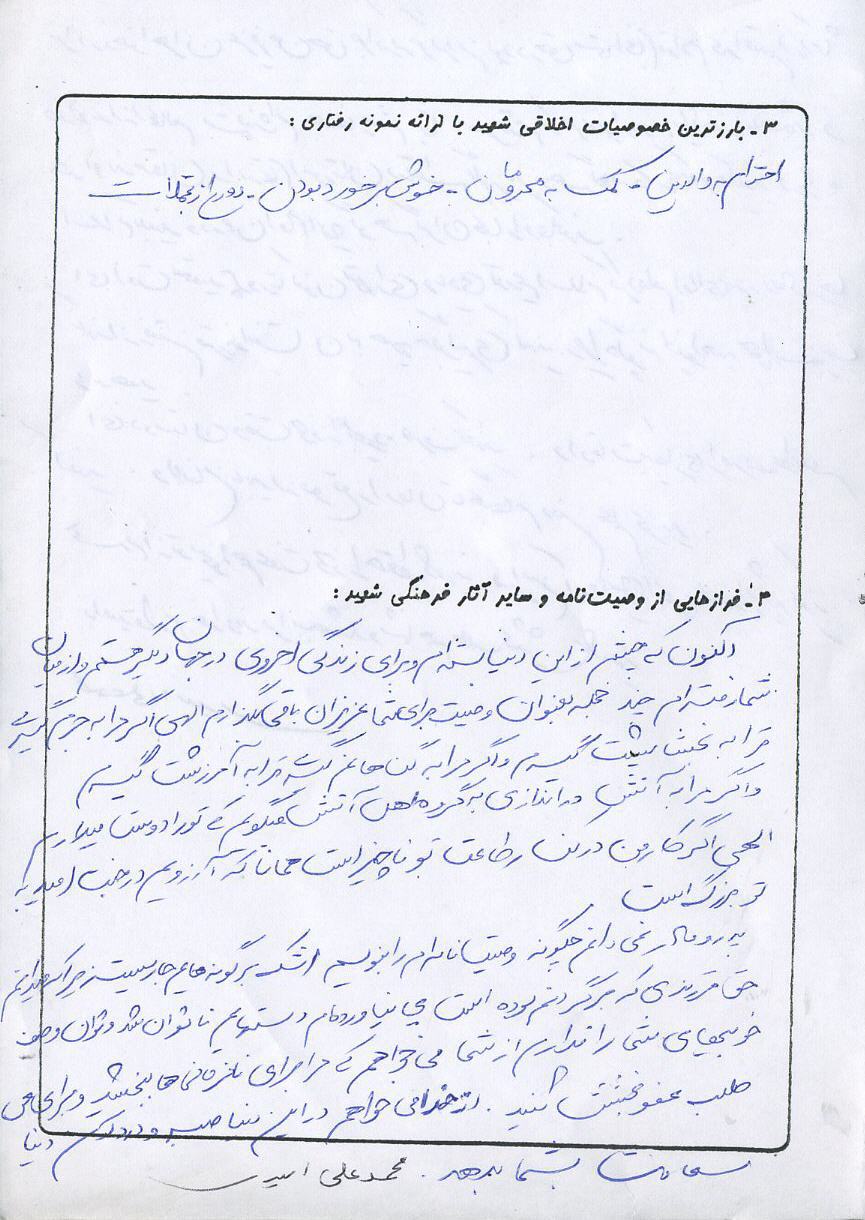 ۳ـ بارزترین خصوصیات اخلاقی شهید با ارائه نمونه رفتاری :
احترام به والدین - کمک به محرومان - خوش برخورد بودن - دوری از تجملات
۴ـ فرازهایی از وصیت‌نامه و سایر آثار فرهنگی شهید :
اکنون که چشم از این دنیا بسته‌ام و برای زندگی اخروی در جهان دیگر هستم و از میان
شما رفته‌ام چند جمله بعنوان وصیت برای شما عزیزان باقی میگذارم الهی اگر مرا به جرم گیری
ترا به بخشش گیرم و اگر مرا به گناهانم گیری ترا به آمرزشت گیرم
و اگر مرا به آتش در اندازی به گروه اهل آتش میگویم که تو را دوست میدارم
الهی اگر کار من در کنار طاعت تو ناچیز است همانا که آرزویم در جنب امید به
تو بزرگ است
پدر و مادر نمی دانم چگونه وصیت نامه‌ام را بنویسم اشک بر گونه‌هایم جاریست زیرا که میدانم
حق فرزندی که بر گردنم بوده است بجا نیاورده‌ام دستهایم ناتوان شد و توان وصف
خوبیهای شما را ندارم از شما می خواهم که مرا برای نافرمانی‌ها ببخشید و برای من
طلب عفو و بخشش کنید . از خدا می خواهم در این دنیا صبر و در آن دنیا
سعادت بشما بدهد . محمد علی